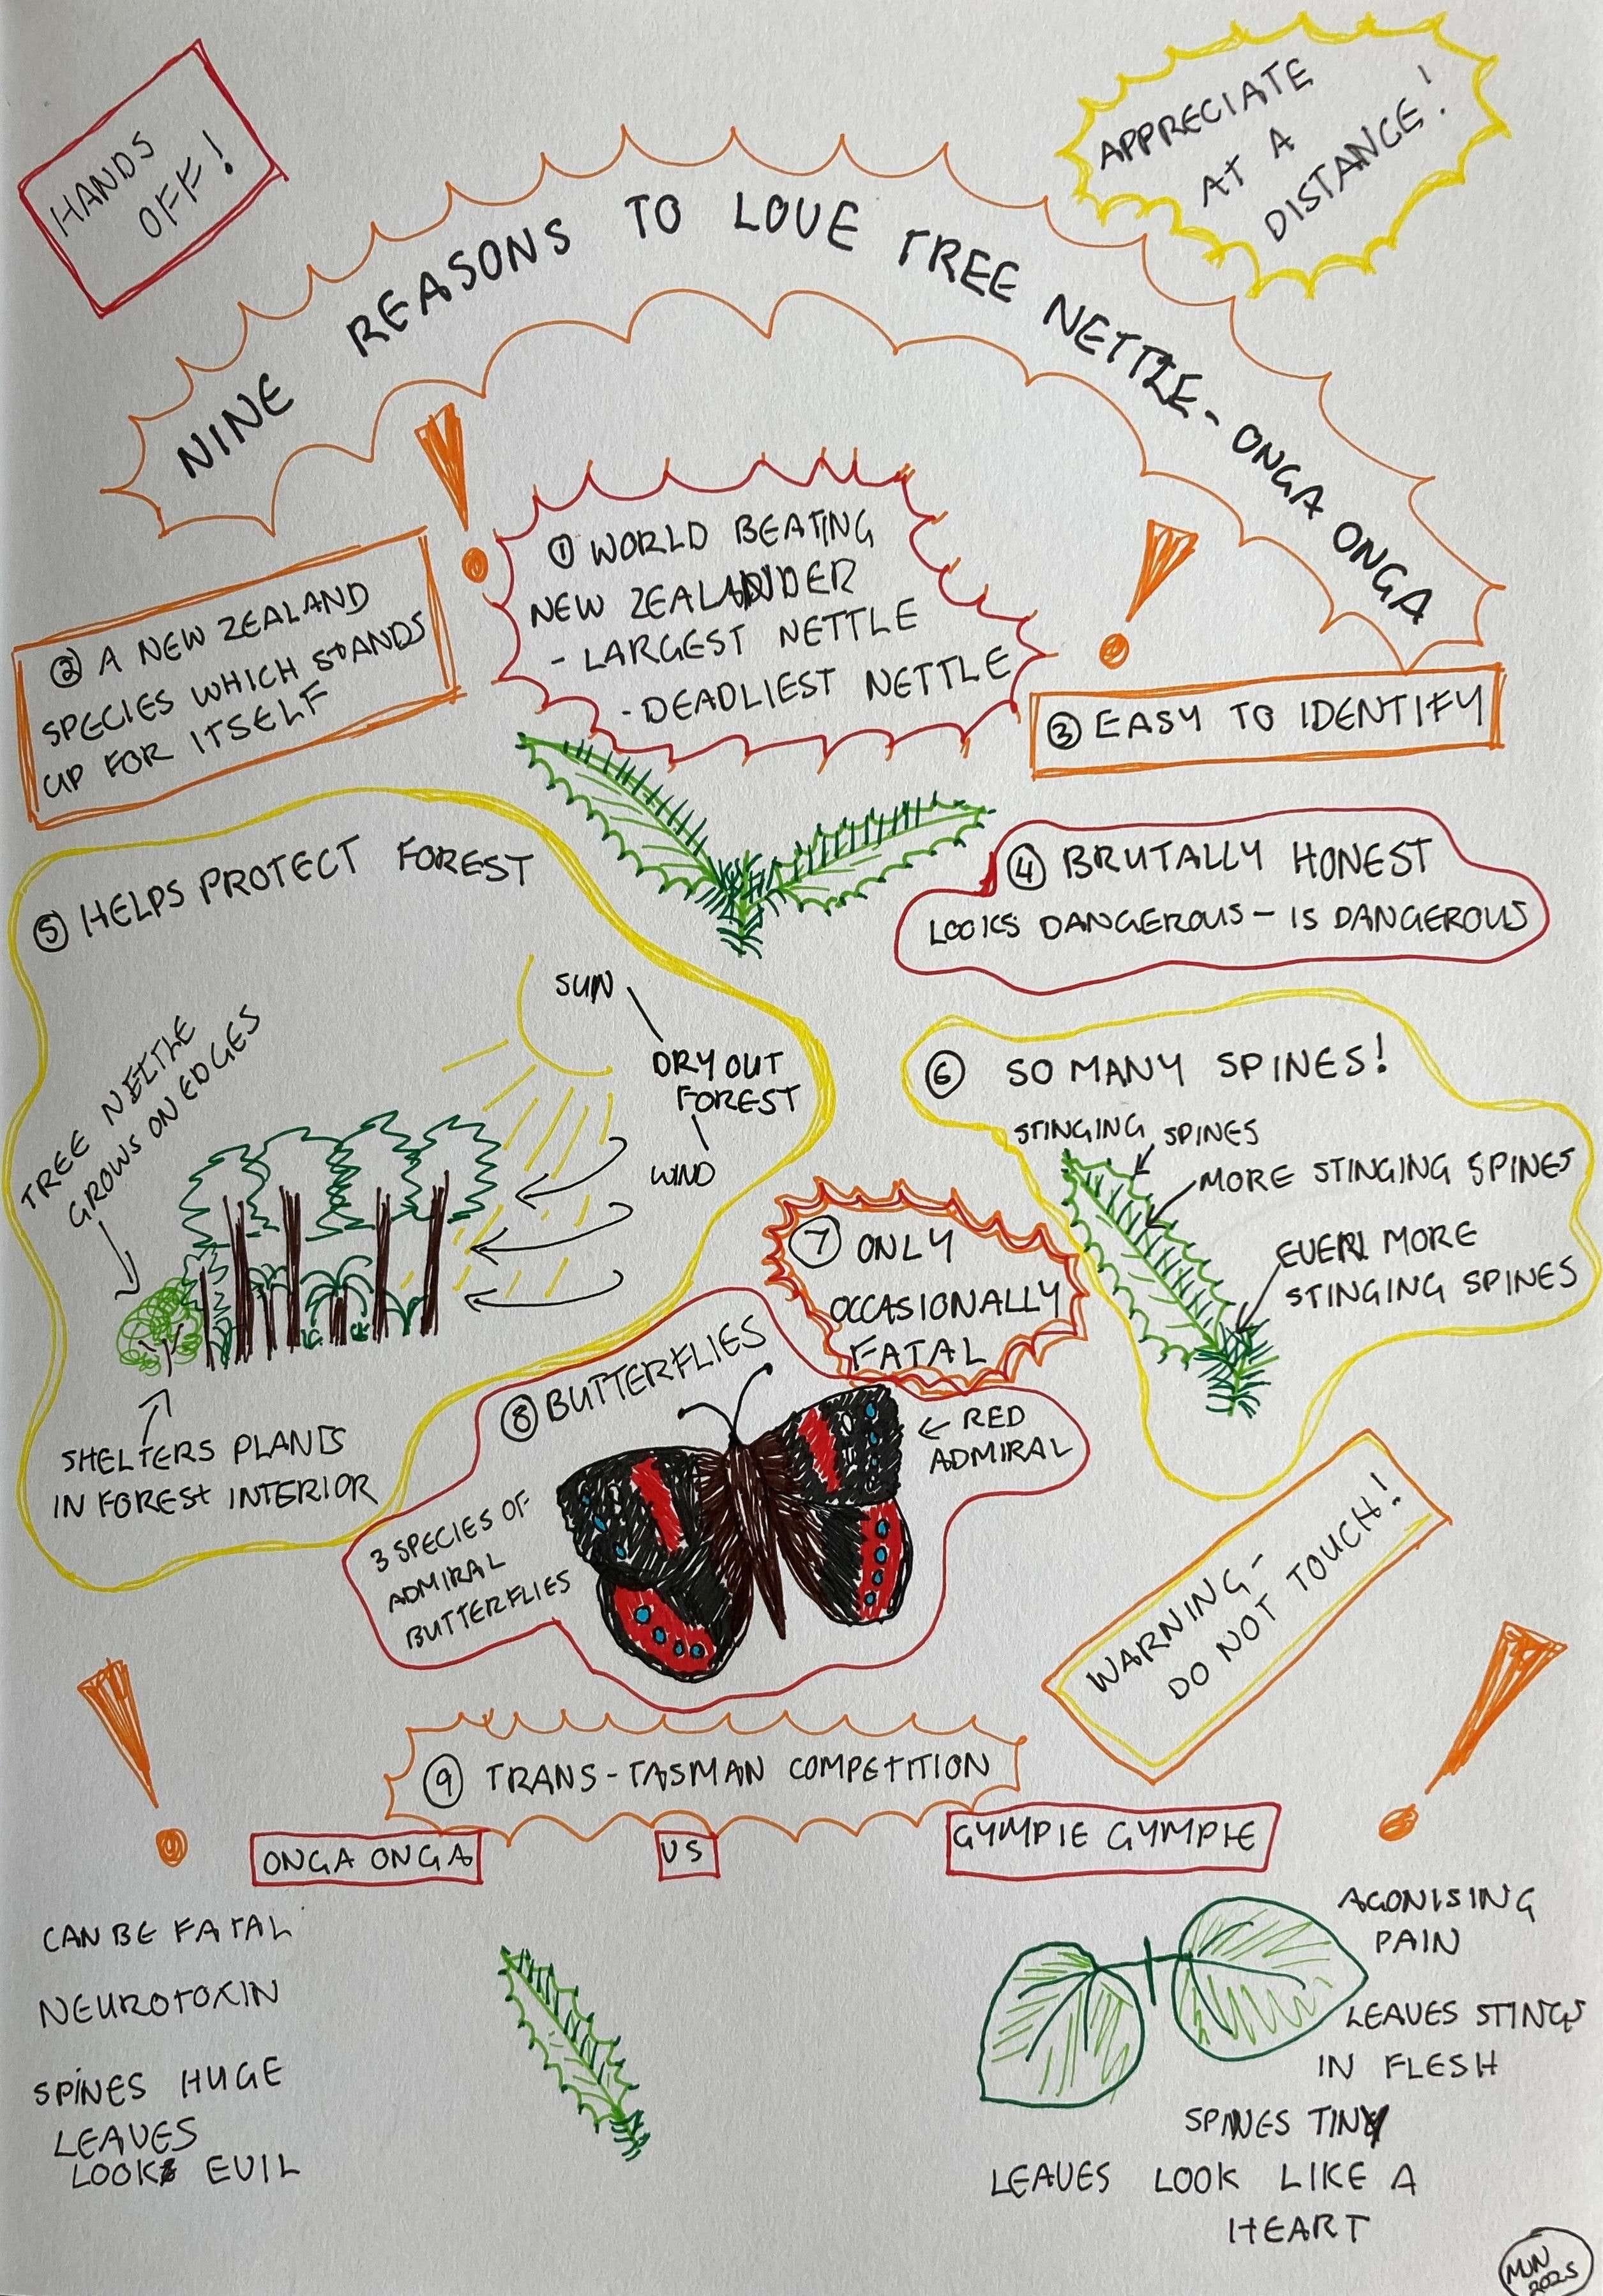 HANDS
OFF!
APPRECIATE
AT A
DISTANCE!
NINE REASONS TO LOVE TREE NETTLE - ONGA ONGA
① WORLD BEATING
NEW ZEALANDER
- LARGEST NETTLE
- DEADLIEST NETTLE
② A NEW ZEALAND
SPECIES WHICH STANDS
UP FOR ITSELF
③ EASY TO IDENTIFY
④ BRUTALLY HONEST
LOOKS DANGEROUS - IS DANGEROUS
⑤ HELPS PROTECT FOREST
SUN
DRY OUT
FOREST
WIND
TREE NETTLE
GROWS ON EDGES
SHELTERS PLANTS
IN FOREST INTERIOR
⑥ SO MANY SPINES!
STINGING SPINES
MORE STINGING SPINES
EVEN MORE
STINGING SPINES
⑦ ONLY
OCCASIONALLY
FATAL
⑧ BUTTERFLIES
RED
ADMIRAL
3 SPECIES OF
ADMIRAL
BUTTERFLIES
WARNING -
DO NOT TOUCH!
⑨ TRANS-TASMAN COMPETITION
ONGA ONGA
VS
GYMPIE GYMPIE
CAN BE FATAL
NEUROTOXIN
SPINES HUGE
LEAVES
LOOK EVIL
AGONISING
PAIN
LEAVES STINGS
IN FLESH
SPINES TINY
LEAVES LOOK LIKE A
HEART
MJN
2025